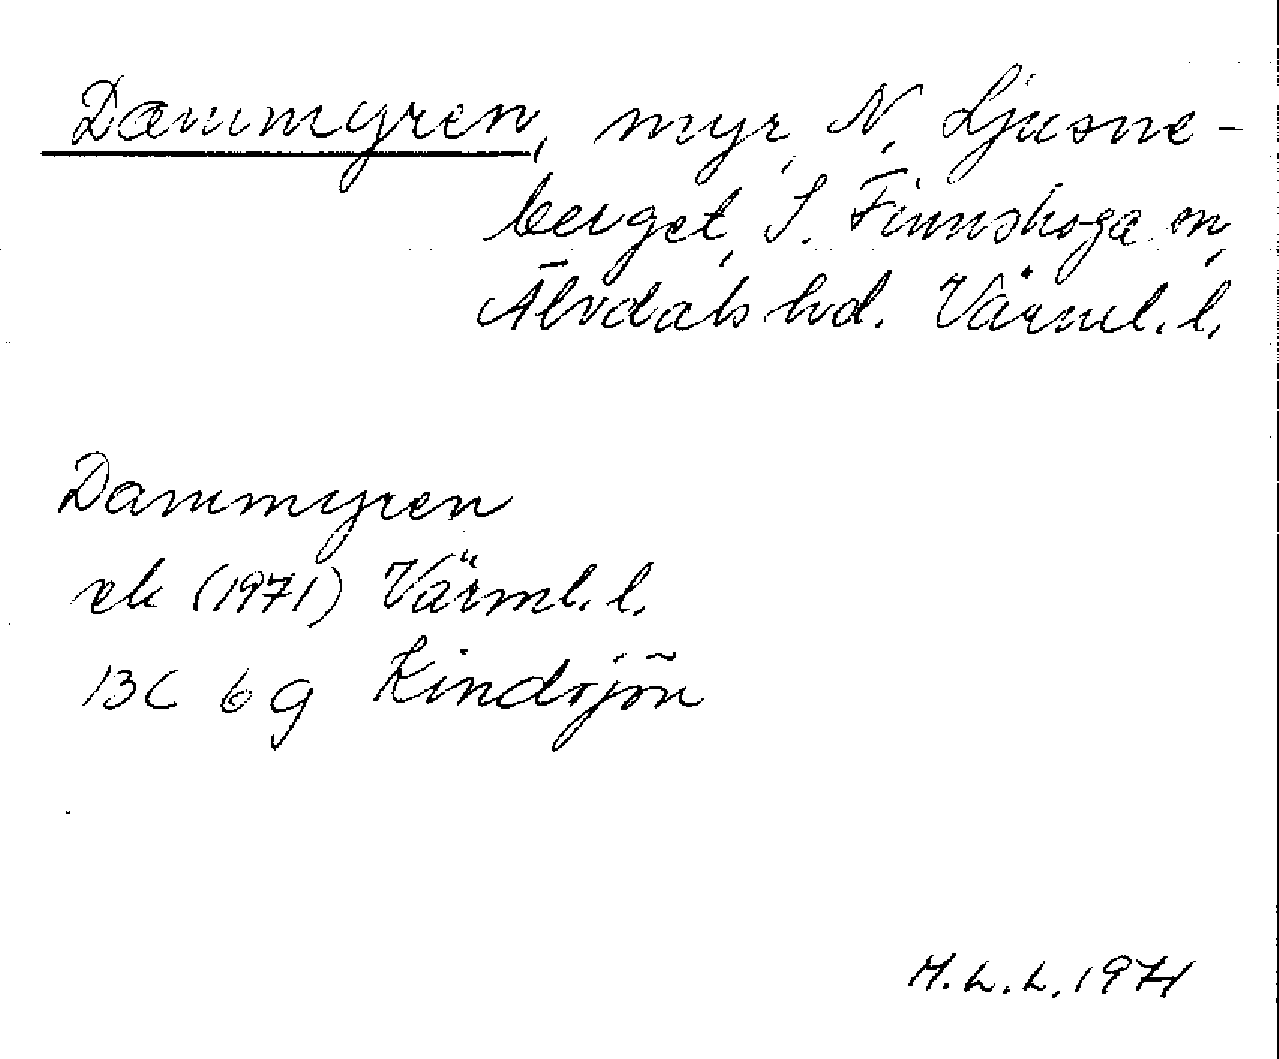 Dammyren, myr, N. Ljusne-
berget, S. Finnskoga sn,
Älvdals hd. Värml. l.
Dammyren
ek (1971) Värml. l.
13C 6g Kindsjön
M.L.L. 1971